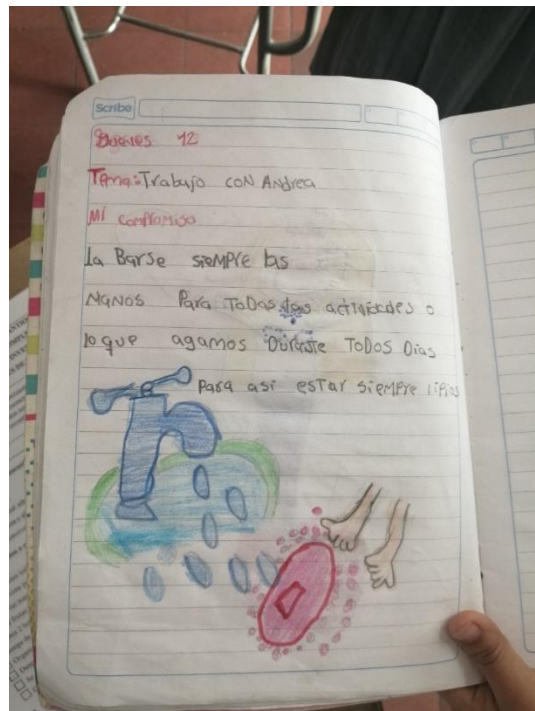 Scribe
Jueves 12
Tema: Trabajo CON Andrea
Mi compromiso
la Barse siempre las
NaNOS Para TODAS las actividades o
lo que agamos Durante TODOS Dias
Para asi estar siempre lipios